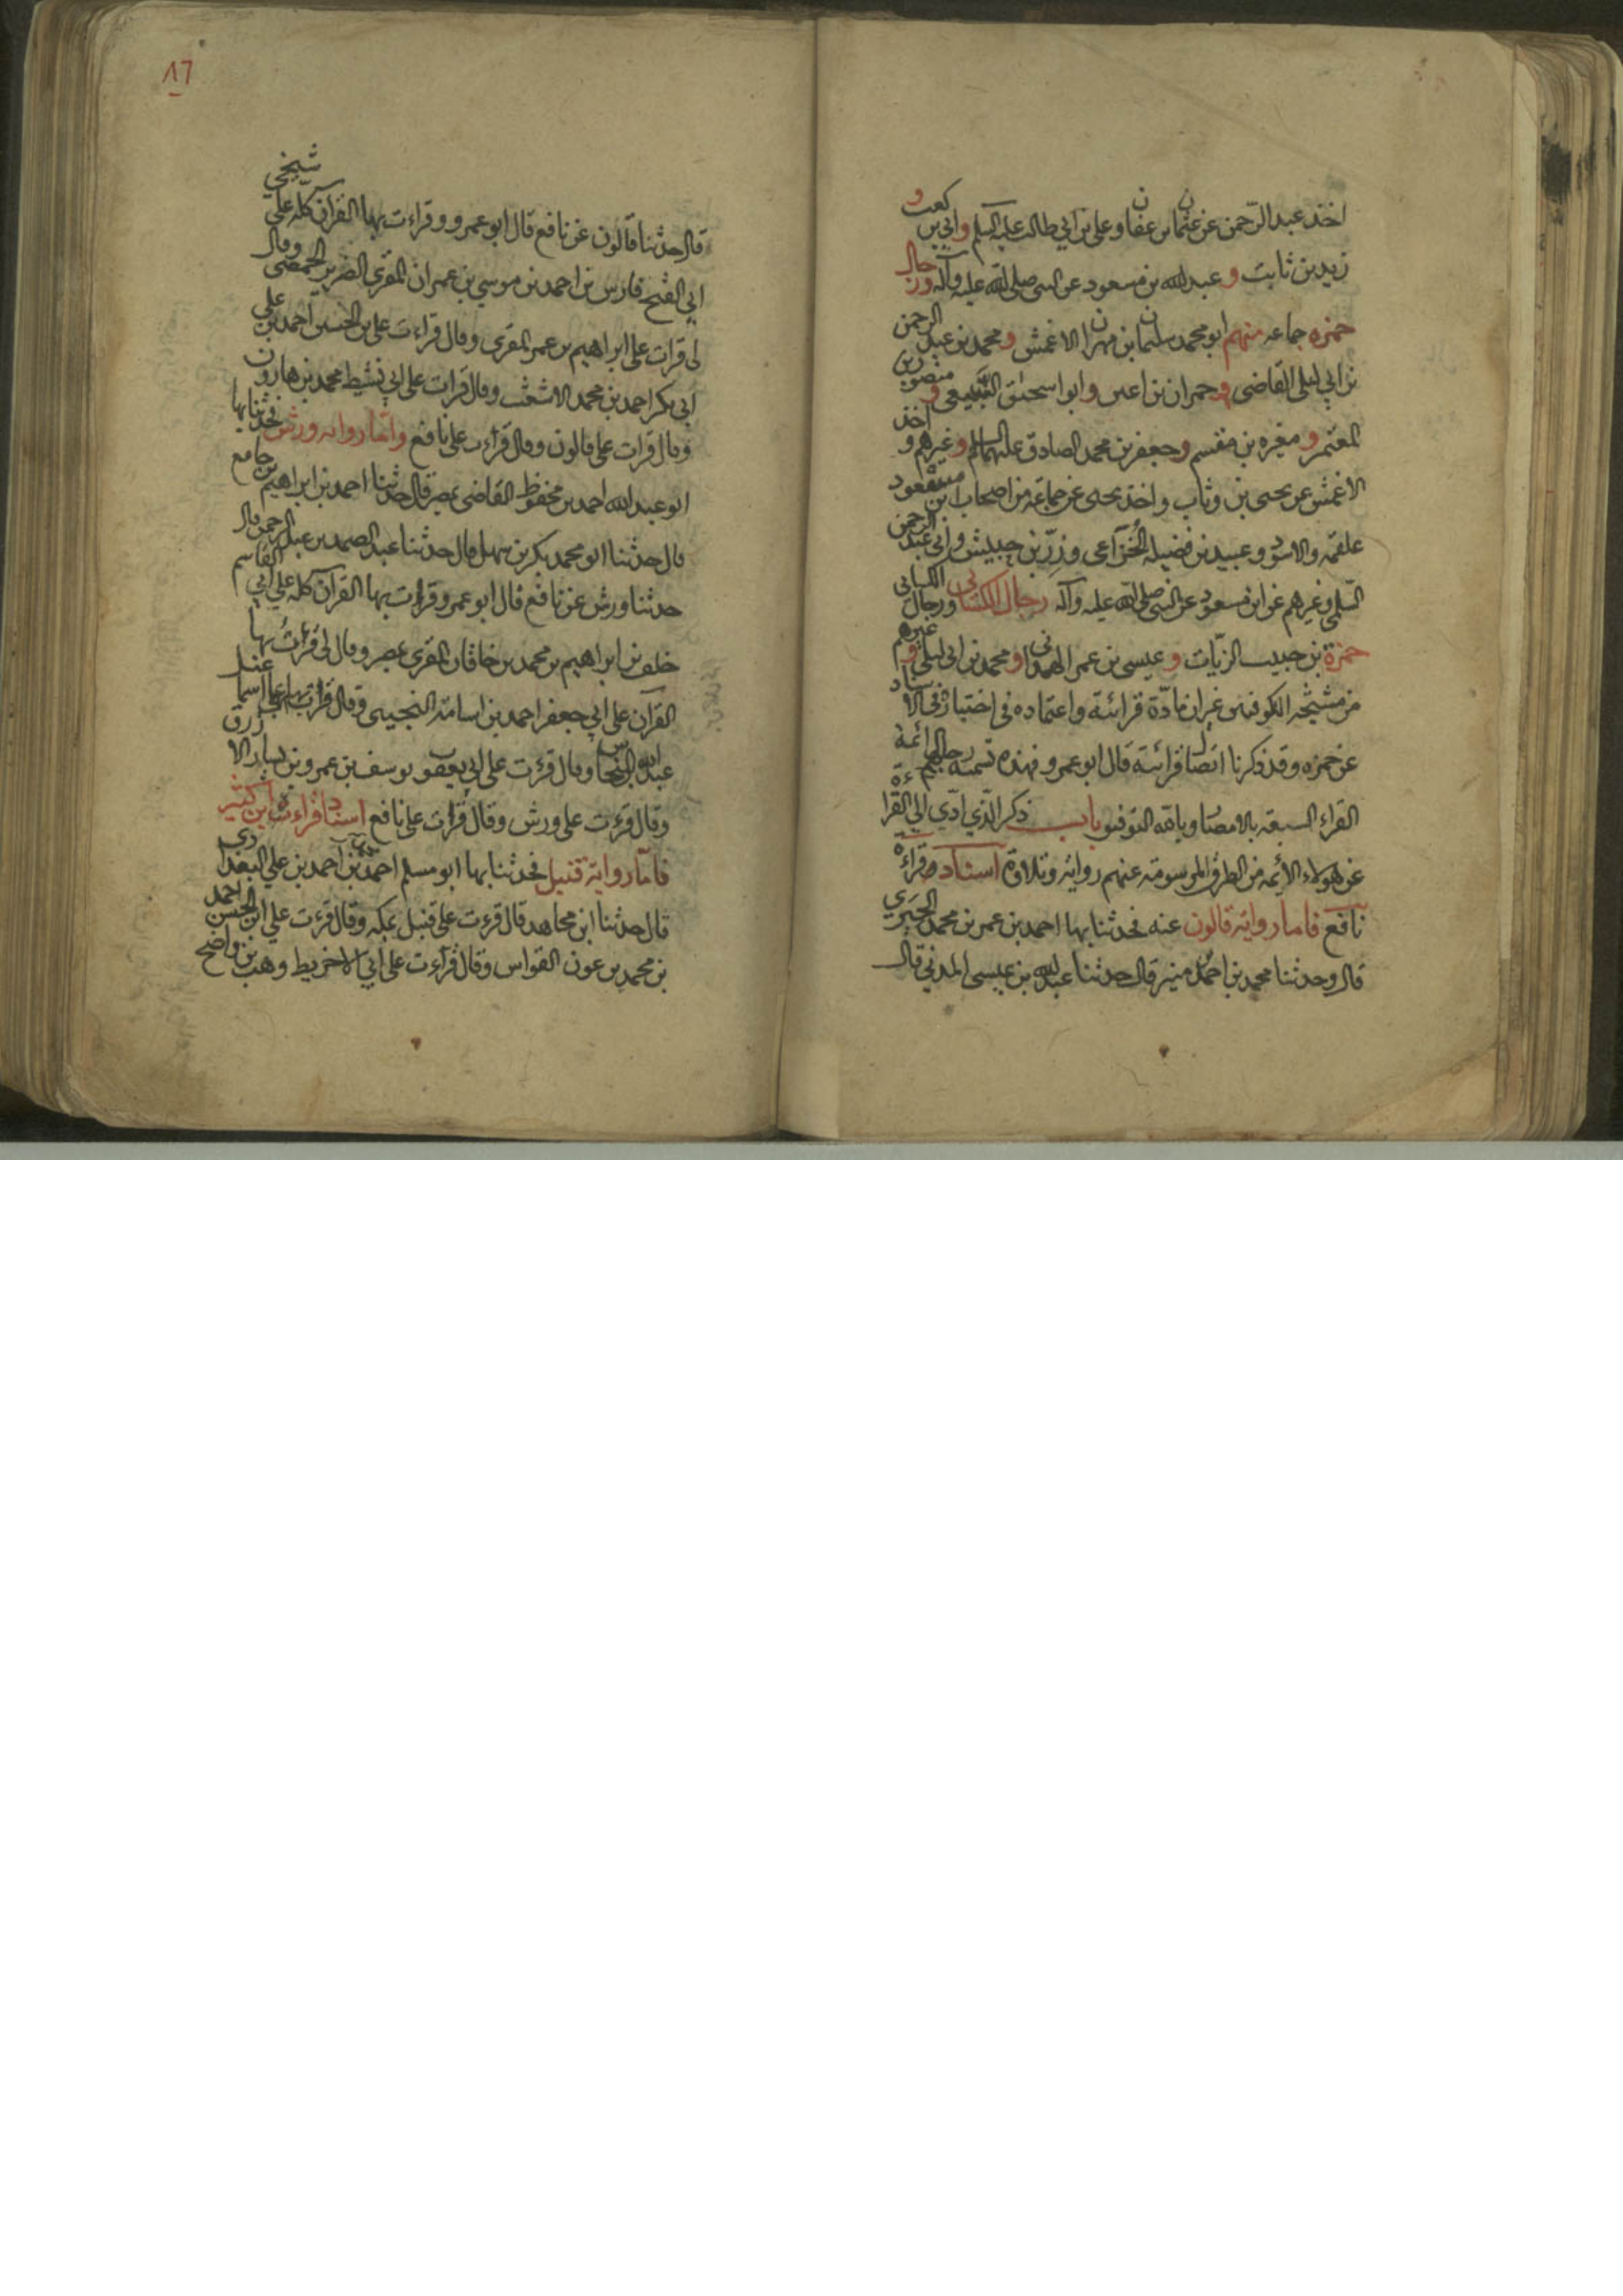 اخذ عبد الرحمن عن عثمان بن عفان و على بن ابي طالب عليه السلم وابي بن كعب و
زيد بن ثابت و عبدالله بن مسعود عن النبى صلى الله عليه وآله ورجال
حمزه جماعه منهم ابو محمد سليمان بن مهران الاعمش و محمد بن عبد الرحمن
بن ابي ليلى القاضى و حمران بن اعين و ابو اسحق السبيعى و منصور بن
المعتمر و مغيره بن مقسم و جعفر بن محمد الصادق عليهما السلم و غيرهم و اخذ
الاعمش عن يحيى بن وثاب و اخذ يحيى عن جماعة من اصحاب ابن مسعود
علقمه والاسود و عبيد بن فضيله الخزاعى و زر بن حبيش و ابي عبد الرحمن
السلمى و غيرهم عن ابن مسعود عن النبى صلى الله عليه وآله رجال الكسائى ورجال الكسائى
حمزة بن حبيب الزيات و عيسى بن عمر الهمدانى و محمد بن ابى ليلى و غيرهم
من مشيخه الكوفيين غير ان مادة قرائته و اعتماده فى اختياره فى الاسناد
عن حمزه و قد ذكرنا اتصال قرائته قال ابو عمرو فهذه تسمية رجال ائمة
القراء السبعة بالامصار وبالله التوفيق باب ذكر الذي ادّي الي القراءة
عن هولاء الائمه من الطرق المرسومة عنهم رواية وتلاوة اسناد قراءة
نافع فاما رواية قالون عنه فحدثنا بها احمد بن عمر بن محمد الجيزي
قال وحدثنا محمد بن احمد منير قال حدثنا عبدالله بن عيسى المدني قال
٨٦
قال حدثنا قالون عن نافع قال ابو عمرو و قراءت بها القرآن كله على شيخي
ابي الفتح فارس بن احمد بن موسي بن عمران المقرى الضرير الحمصى وقال
لى قرات على ابراهيم بن عمر المقرى وقال قراءت على بن الحسين احمد بن على
ابى بكر احمد بن محمد الاشعث وقال قرات على ابي نشيط محمد بن هارون
وقال قرات على قالون وقال قراءت على نافع وامّا روايه ورش فحدثنا بها
ابو عبدالله احمد بن محفوظ القاضى بمصر قال حدثنا احمد بن ابراهيم بن جامع
قال حدثنا ابو محمد بكر بن سهل قال حدثنا عبد الصمد بن عبد الرحمن قال
حدثنا ورش عن نافع قال ابو عمرو قراءت بها القرآن كله على ابي القاسم
خلف بن ابراهيم بن محمد بن خاقان المقرى بمصر وقال لى قرات بها
القران على ابي جعفر احمد بن اسامة التجيبى وقال قرات بها على اسما
عبدالله النحاس وقال قرئت على ابى يعقوب يوسف بن عمرو بن يسار الازرق
وقال قرءت على ورش وقال قرات على نافع اسناد قراءت ابن كثير
فامّا رواية قنبل فحدثنا بها ابو مسلم احمد بن احمد بن علي البغدادى
قال حدثنا ابن مجاهد قال قرءت على قنبل بمكه وقال قرءت علي ابى الحسن احمد
بن محمد بن عون القواس وقال قرآءت على ابي الاخريط وهب بن واضح